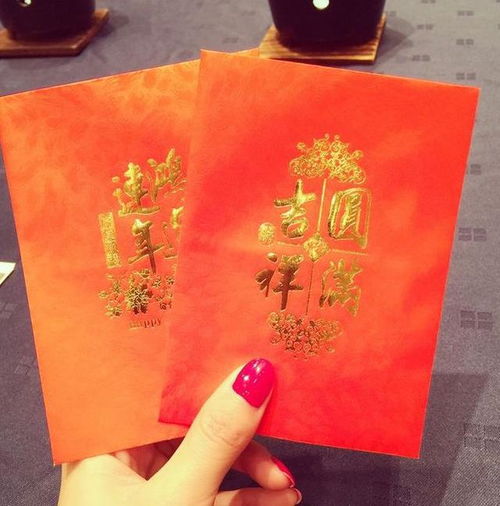 鴻
連年
happy
圓滿
吉祥